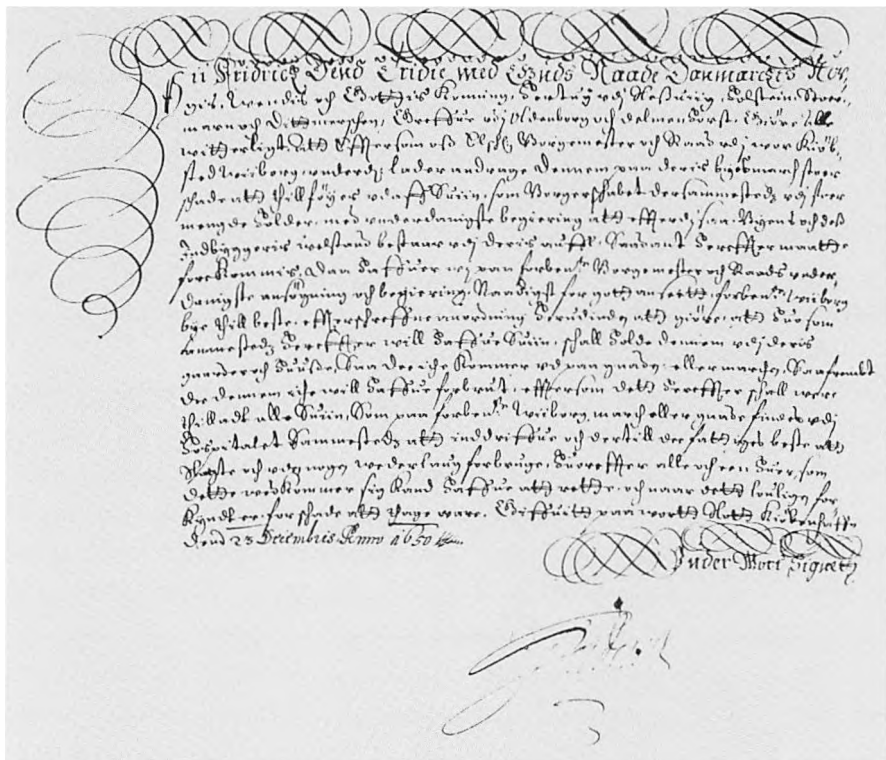 Wii Fridrich Dend Tridie med Gudz Naade Danmarckis Nor,
gis, Wendis och Gottis Konning, Hertug vdj Slesuiig, Holsteen, Stor,
marn och Dittmerschen, Greffue vdj Oldenborg och Delmenhorst, Giøre alle
witterligt, att Effter som oss Elschel. Borgemester och Raad vdj wor Kiøb,
sted Wiiborg, underdan. lader andrage dennem paa deris byesmarch stoer
schade att thilføyes vdaff Suin, som Borgerschabet dersammestedz vdj stoer
mengde holder, med underdanigste begiering att efftterdj saa
Indbyggeris velstand bestaar vdj deris auffl. Saadant herefter maatte
forekommis. Daa haffuer wi paa forben.te Borgemester och Raads under,
danigste ansøgning och begiering, Naadigst for gott ansett, forben.te Wiiborg
bye thill beste, effterschreffne anordning herudinden att giøre, att huo som
sammestedz hereffter will haffue Suin, schall holde dennem vdj deris
gaarde och huusse, Saa de iche kommer vd paa gaden eller marchen, Saafrembt
de dennem iche will haffue forbrut, effttersom dett hereffter schall were
thilladt alle Suin, Som paa forben.te Wiiborg march eller gaade findes vdj
Hospitalet Sammestedz att inddriffue och dertill de fattiges beste att
slagte och vden nogen wederlaug forbruge. Huoreffter alle och een huer, som
dette wedkommer sig kand haffue att rette, och naar dett louligen for
kyndt er, for schade att thage ware. Giffuit paa wortt Slott Kiøbenhaffn
Dend 23 Decembris Anno 1650
Under Wort Signett